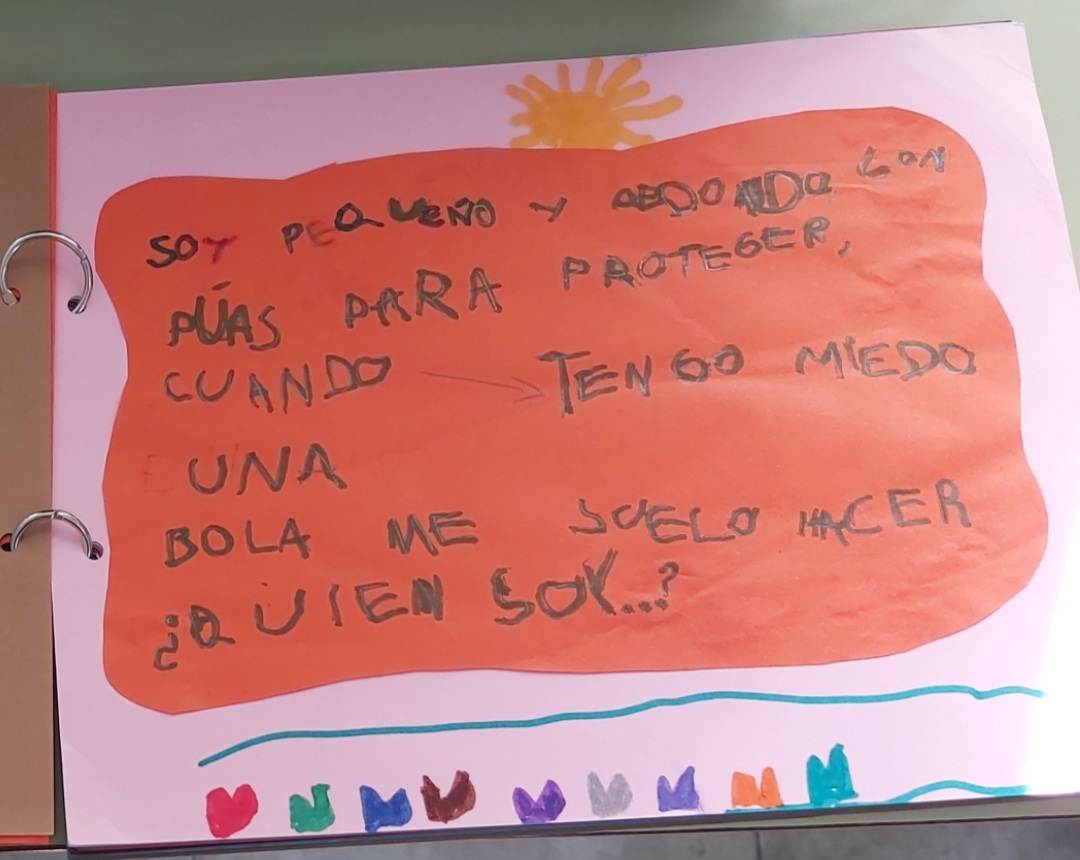 SOY PEQUEÑO Y REDONDO CON
PÚAS PARA PROTEGER,
CUANDO → TENGO MIEDO
UNA
BOLA ME SUELO HACER
¿QUIEN SOY...?